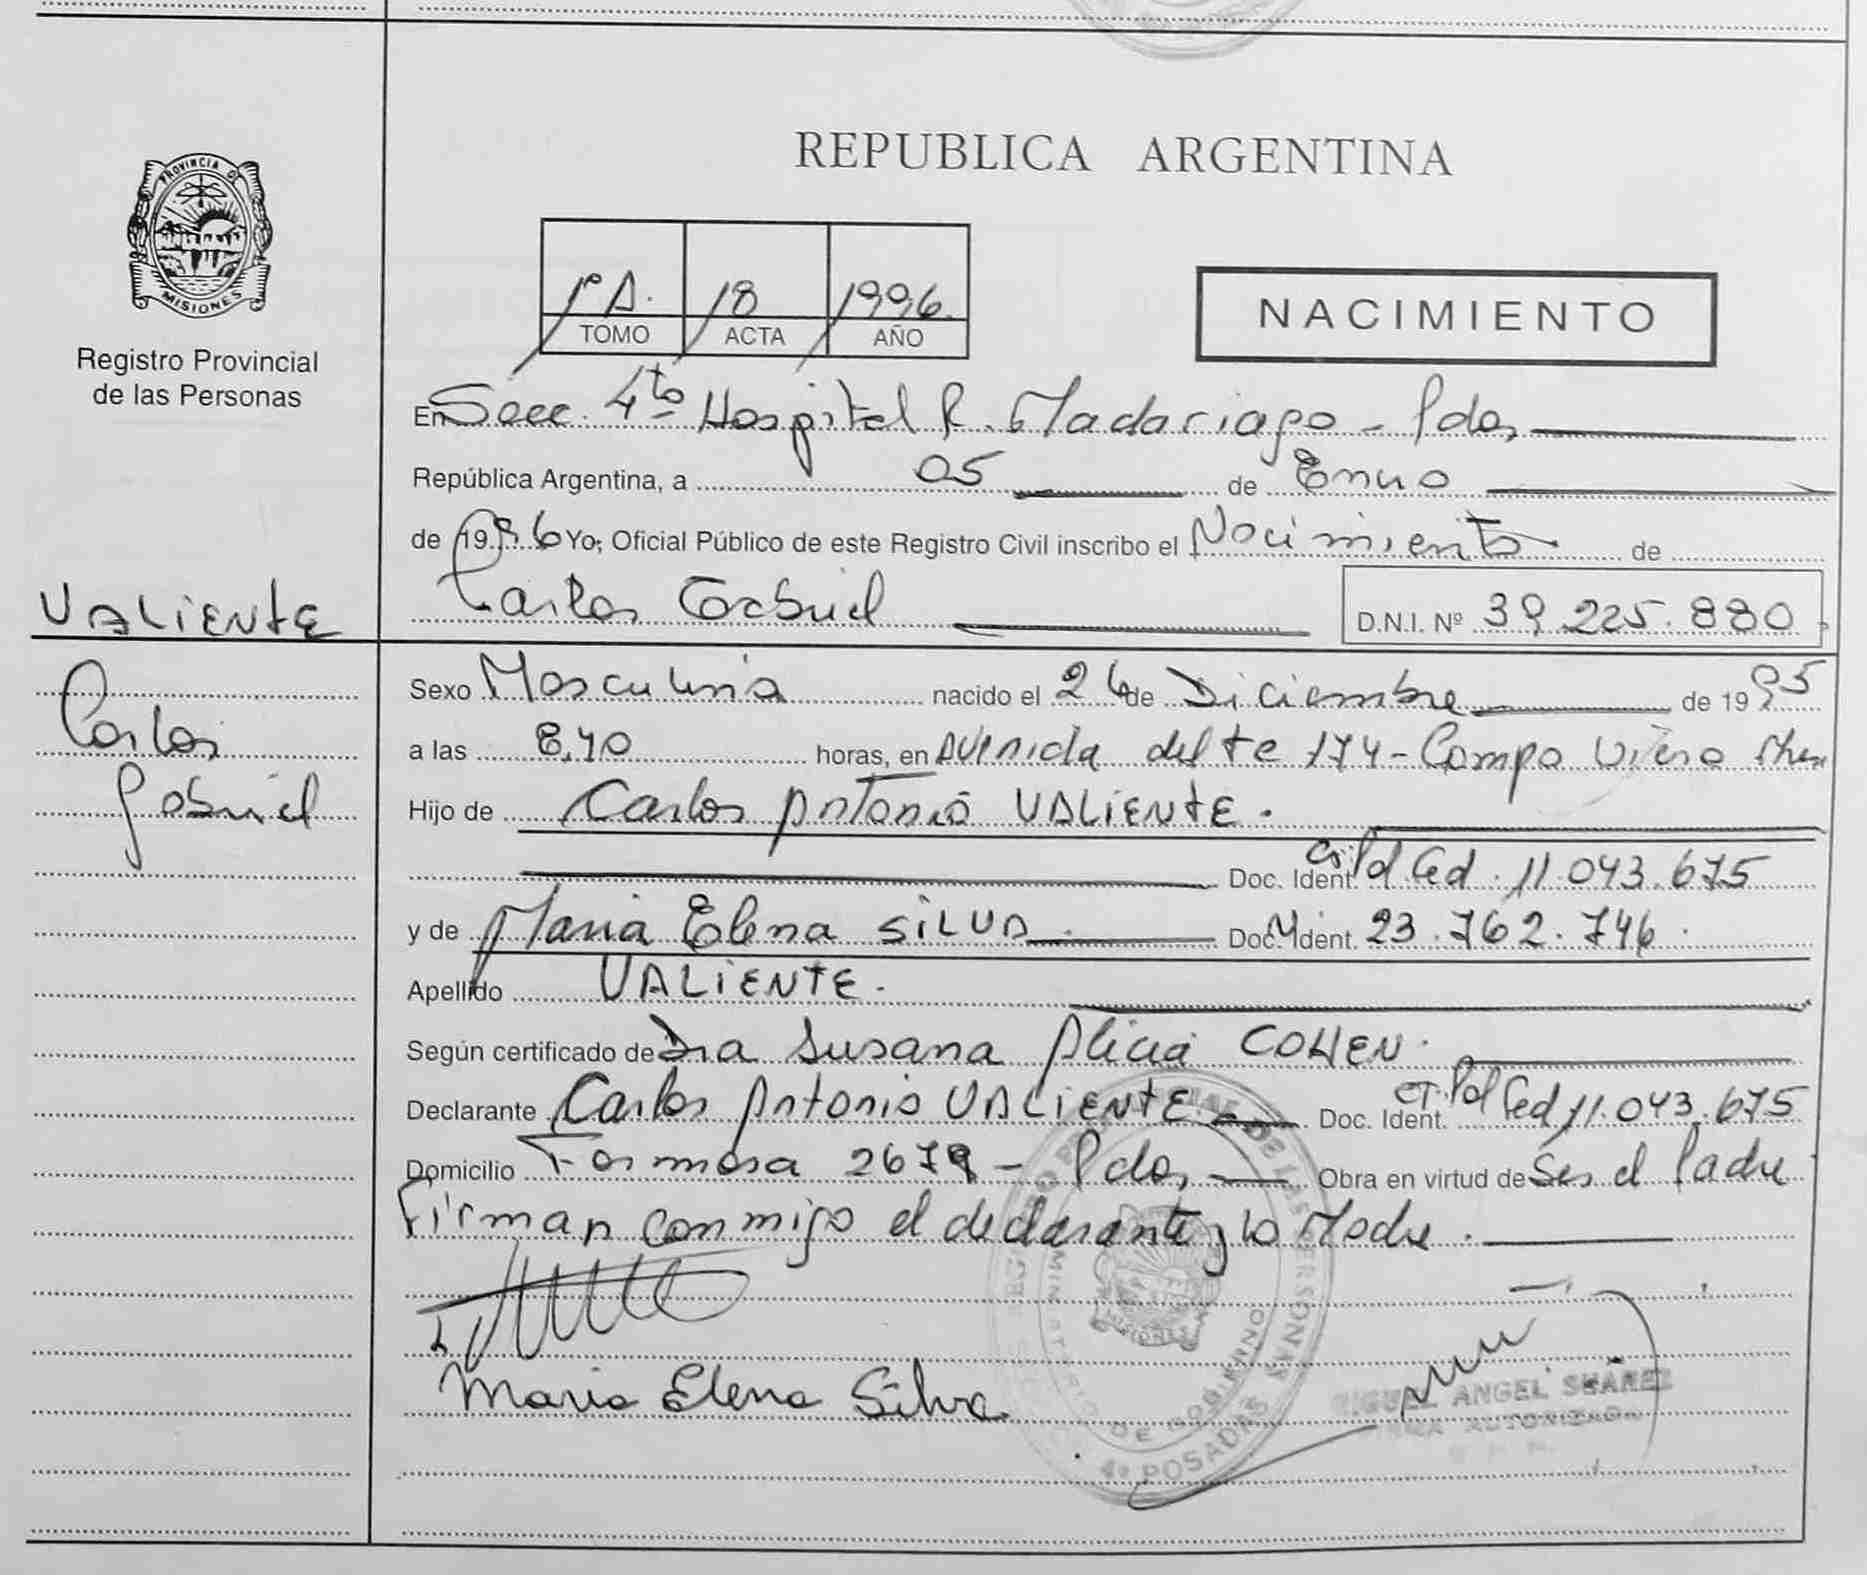 PROVINCIA DE
MISIONES
Registro Provincial
de las Personas
VALIENTE
Carlos
Gabriel
REPUBLICA ARGENTINA
1º A. 18 1996
TOMO ACTA AÑO
NACIMIENTO
En Secc. 4to Hospital R. Madariaga - Pdas
República Argentina, a 05 de Enero
de 1996 Yo, Oficial Público de este Registro Civil inscribo el Nacimiento de
Carlos Gabriel D.N.I. Nº 39.225.880
Sexo Masculino nacido el 26 de Diciembre de 1995
a las 8,40 horas, en Avenida del te 174 - Campo Viera
Hijo de Carlos Antonio VALIENTE.
Doc. Ident. CI Pol Fed. 11.043.675
y de Maria Elena SILVA Doc. Ident. 23.762.746.
Apellido VALIENTE.
Según certificado de Dra Susana Alicia COHEN.
Declarante Carlos Antonio VALIENTE Doc. Ident. CI. Pol Fed 11.043.675
Domicilio Formosa 2679 - Pdas Obra en virtud de Ser el Padre
Firman conmigo el declarante y la Madre.
Maria Elena Silva
MIGUEL ANGEL SUAREZ
FIRMA AUTORIZADA
REGISTRO PROVINCIAL DE LAS PERSONAS
MINISTERIO DE GOBIERNO
4º POSADAS